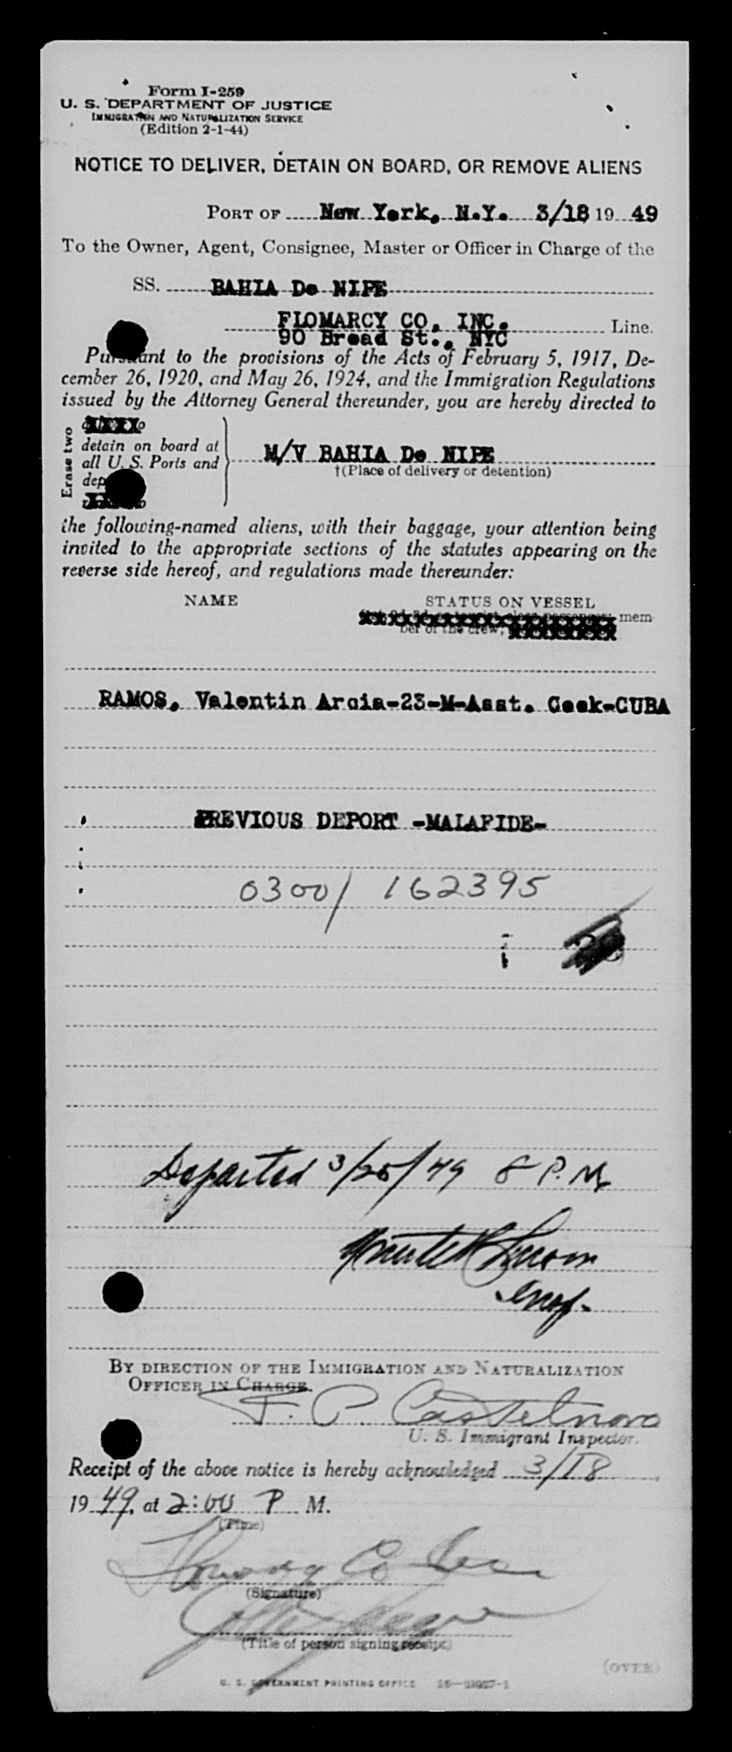 Form I-259
U. S. DEPARTMENT OF JUSTICE
IMMIGRATION AND NATURALIZATION SERVICE
(Edition 2-1-44)
NOTICE TO DELIVER, DETAIN ON BOARD, OR REMOVE ALIENS
PORT OF New York, N.Y. 3/18 19 49
To the Owner, Agent, Consignee, Master or Officer in Charge of the
SS. BAHIA De NIPE
FLOMARCY CO. INC. Line.
90 Broad St., NYC
Pursuant to the provisions of the Acts of February 5, 1917, De-
cember 26, 1920, and May 26, 1924, and the Immigration Regulations
issued by the Attorney General thereunder, you are hereby directed to
Erase two
detain on board at
all U. S. Ports and
M/V BAHIA De NIPE
†(Place of delivery or detention)
the following-named aliens, with their baggage, your attention being
invited to the appropriate sections of the statutes appearing on the
reverse side hereof, and regulations made thereunder:
NAME STATUS ON VESSEL
mem-
ber of the crew,
RAMOS, Valentin Arcia-23-M-Asst. Cook-CUBA
PREVIOUS DEPORT -MALAFIDE-
0300/ 162395
Departed 3/25/49 8 P.M.
Insp.
BY DIRECTION OF THE IMMIGRATION AND NATURALIZATION
OFFICER IN CHARGE.
F. P. Castelnovo
U. S. Immigrant Inspector.
Receipt of the above notice is hereby acknowledged 3/18,
19 49, at 2:00 P M.
(Time)
(Signature)
(Title of person signing receipt)
(OVER)
U. S. GOVERNMENT PRINTING OFFICE